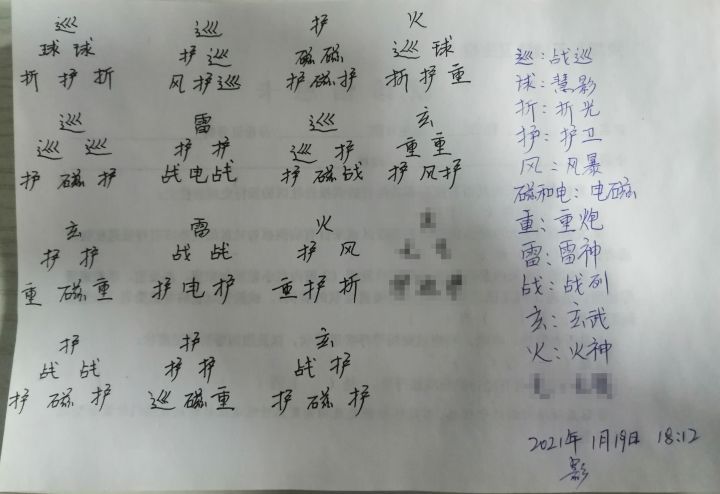 巡 巡 护 火
球 球 护 巡 磁 磁 巡 球
折 护 折 风 护 巡 护 磁 护 折 护 重
巡 雷 巡 玄
巡 巡 护 护 巡 护 重 重
护 磁 护 战 电 战 护 磁 战 护 风 护
玄 雷 火
护 护 战 战 护 风
重 磁 重 护 电 护 重 护 折
护 护 玄
战 战 护 护 战 护
护 磁 护 巡 磁 重 护 磁 护
巡：战巡
球：慧影
折：折光
护：护卫
风：风暴
磁和电：电磁
重：重炮
雷：雷神
战：战列
玄：玄武
火：火神
2021年1月19日 18:12
影